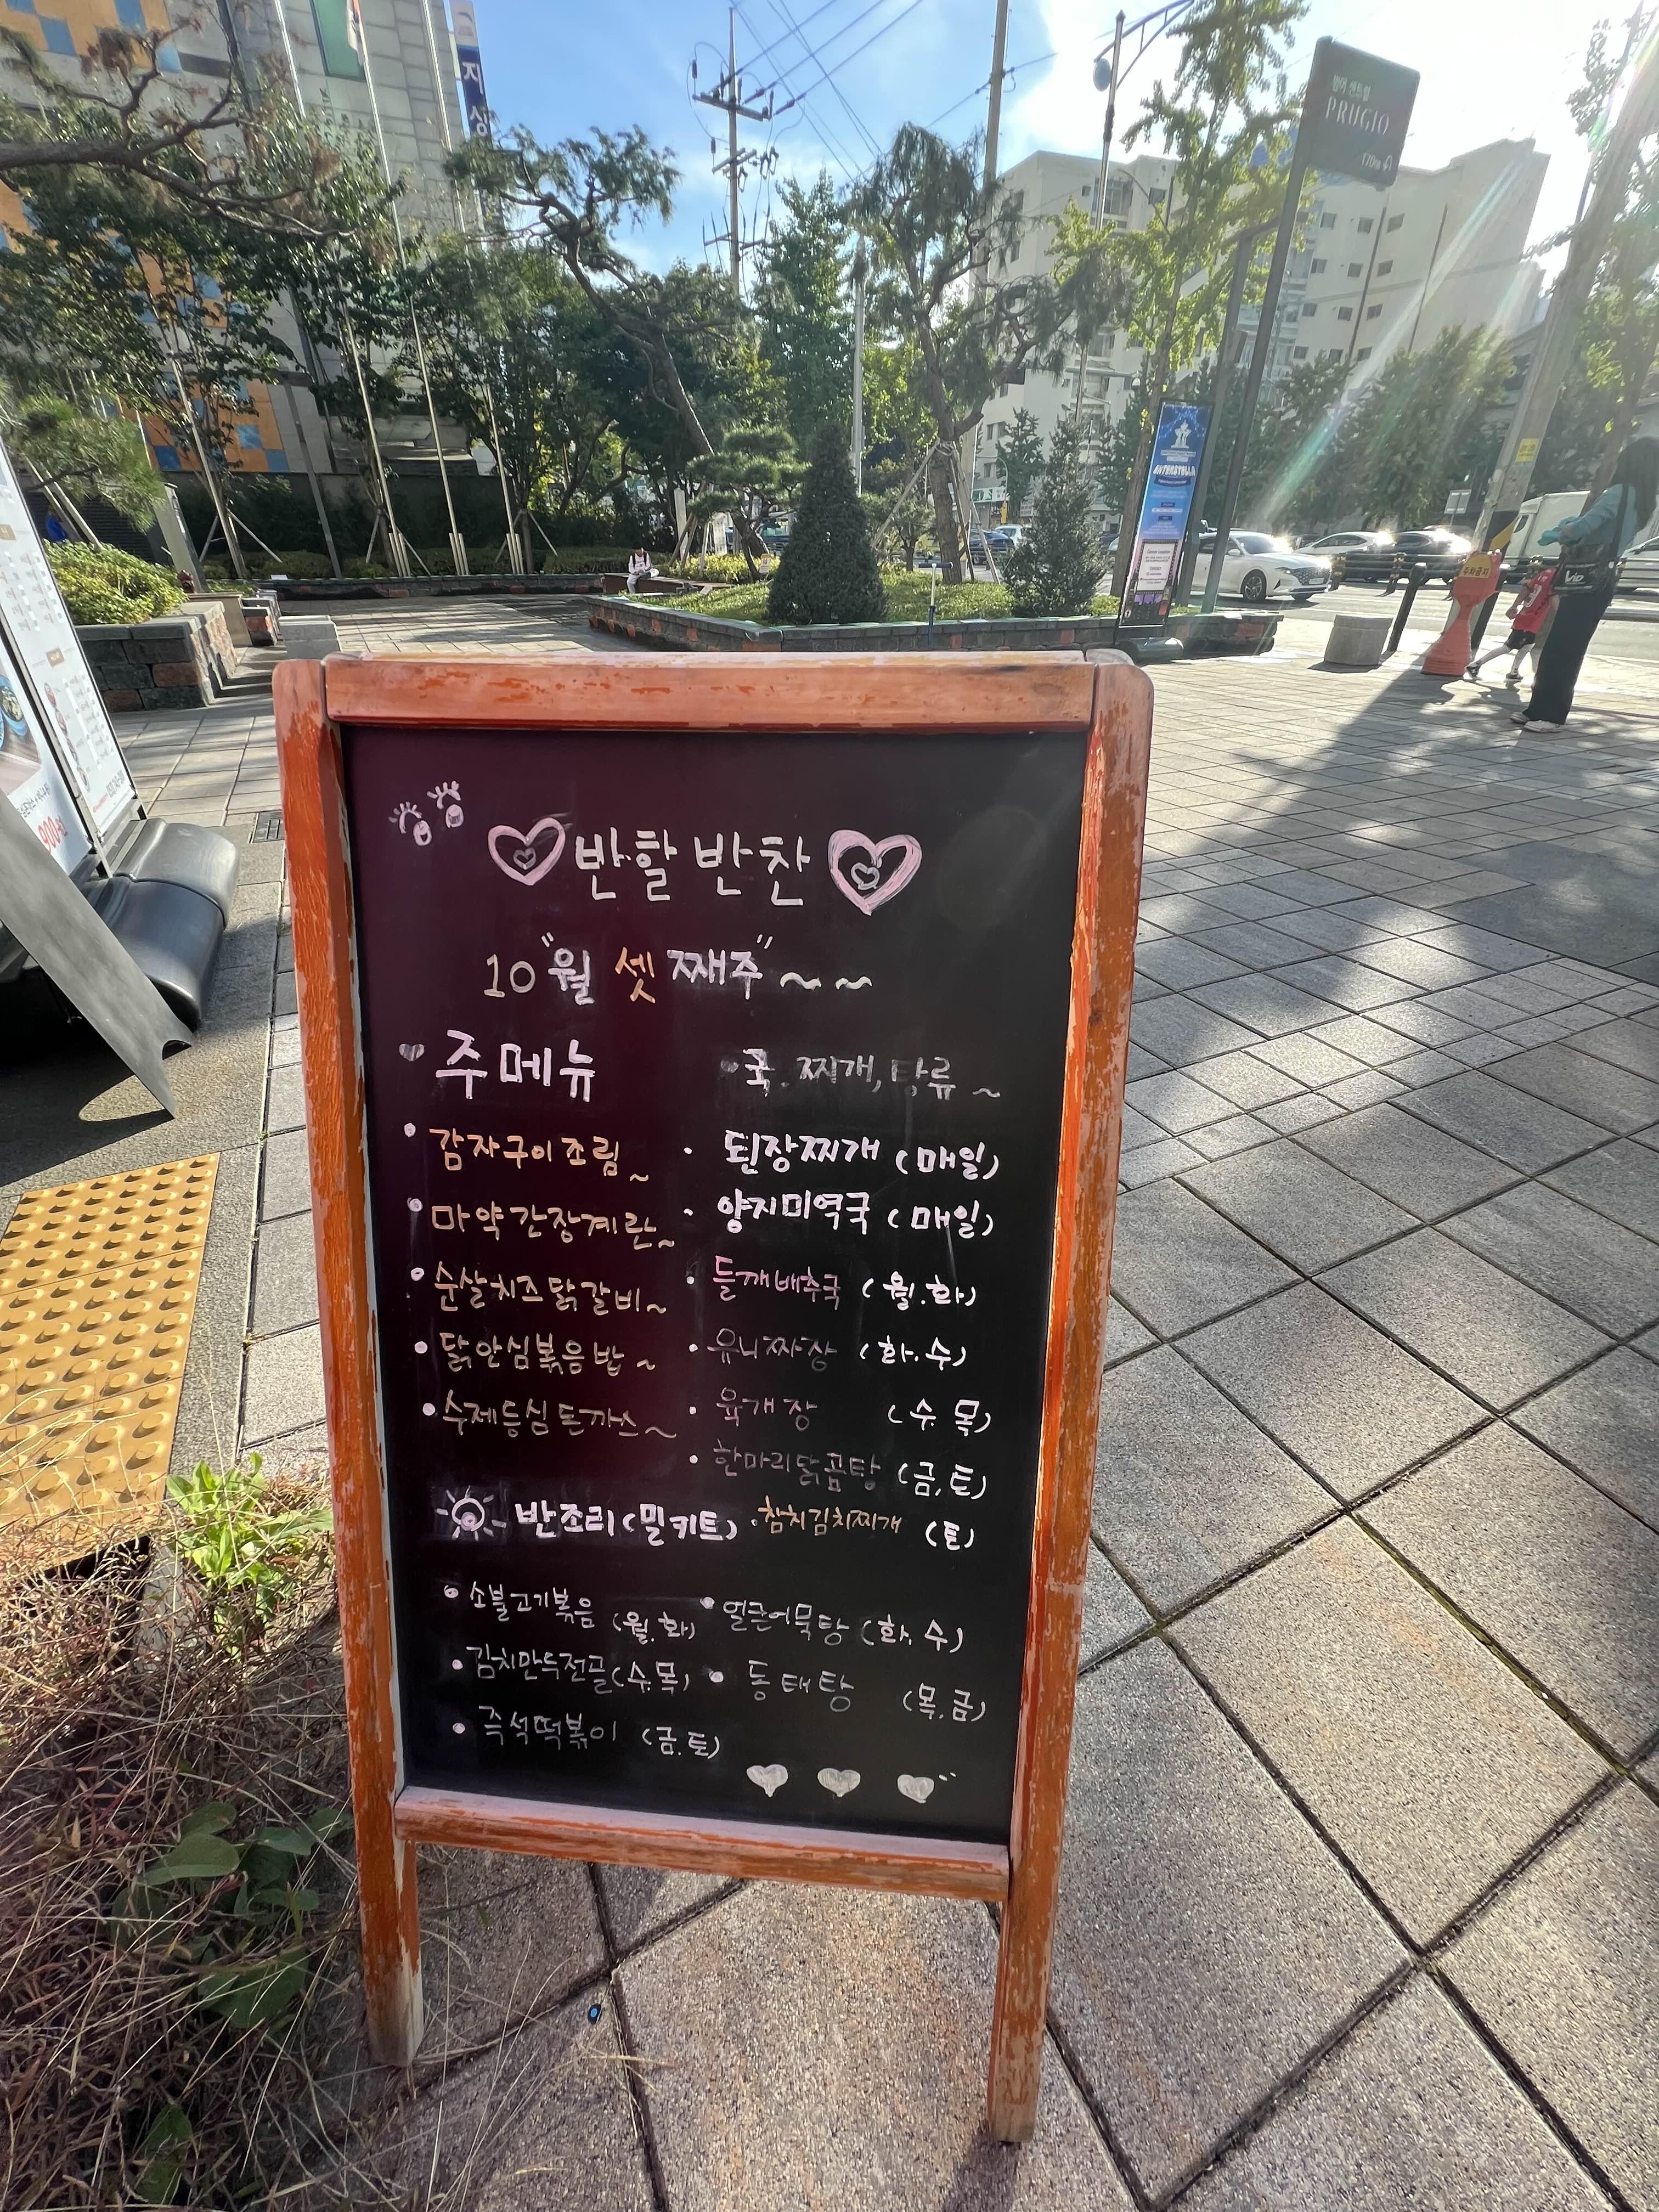 지성
범어 센트럴
PRUGIO
170m
주차금지
반할반찬
10"월 셋째주"~~
주메뉴
국.찌개,탕류~
감자구이조림~
된장찌개 (매일)
마약간장계란~
양지미역국 (매일)
순살치즈닭갈비~
들깨배추국 (월.화)
닭안심볶음밥~
유니짜장 (화.수)
수제등심돈까스~
육개장 (수.목)
한마리닭곰탕 (금,토)
반조리(밀키트)
참치김치찌개 (토)
소불고기볶음 (월.화)
얼큰어묵탕 (화.수)
김치만두전골(수.목)
동태탕 (목.금)
즉석떡볶이 (금.토)